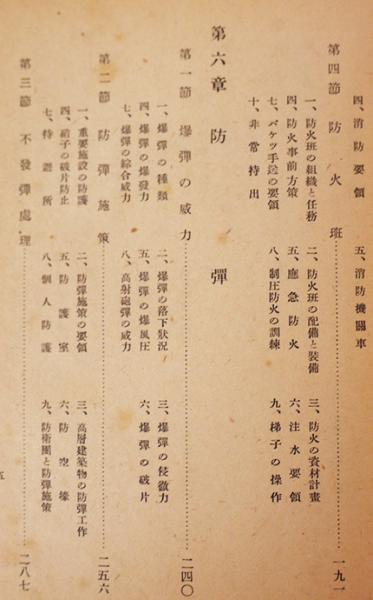 四、消防要領　五、消防機關車
第四節　防火班……一九一
一、防火班の組織と任務　二、防火班の配備と裝備　三、防火の資材計畫
四、防火事前方策　五、應急防火　六、注水要領
七、バケツ手送の要領　八、制圧防火の訓練　九、梯子の操作
十、非常持出
第六章　防彈
第一節　爆彈の威力……二四〇
一、爆彈の種類　二、爆彈の落下狀況　三、爆彈の侵徹力
四、爆彈の爆發力　五、爆彈の爆風圧　六、爆彈の破片
七、爆彈の綜合威力　八、高射砲彈の威力
第二節　防彈施策……二五六
一、重要施設の防護　二、防彈施策の要領　三、高層建築物の防彈工作
四、硝子の破片防止　五、防護室　六、防空壕
七、待避所　八、個人防護　九、防衞團と防彈施策
第三節　不發彈處理……二八七
五